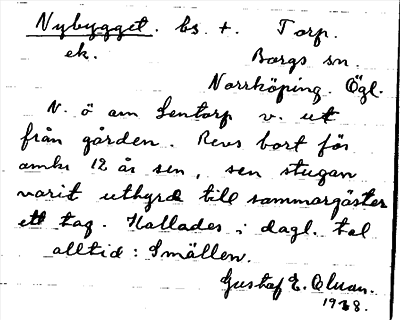 Nybygget. bs. t. Torp.
ek. Borgs sn.
Norrköping. Ögl.
N. ö om Lentorp v. ut
från gården. Revs bort för
omkr 12 år sen, sen stugan
varit uthyrd till sommargäster
ett tag. Kallades i dagl. tal
alltid: Smällen.
Gustaf E.